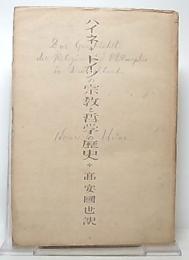 ハイネ・ドイツの宗教と哲学の歴史・高安國世訳
Zur Geschichte
der Religion und Philosophie
in Deutschland
Heinrich Heine